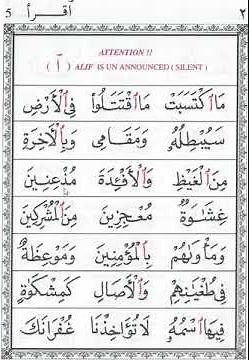 5 اقرأ ٢
ATTENTION !!
( اۤ ) ALIF IS UN ANNOUNCED ( SILENT )
مَااكْتَسَبَتْ مَااقْتَتَلُوْا فِي الْاَرْضِ
سَيُبْطِلُهٗ وَمَقَامِيْ وَبِالْاٰخِرَةِ
مِنَ الْغَيْظِ وَالْاَفْئِدَةَ مُذْعِنِيْنَ
غِشَاوَةٌ مُعْجِزِيْنَ مِنَ الْمُشْرِكِيْنَ
وَمَأْوٰىهُمْ بِالْمُؤْمِنِيْنَ وَمَوْعِظَةٌ
فِيْ طُغْيَانِهِمْ وَالْاٰصَالِ كَمِشْكٰوةٍ
فِيْهَا اسْمُهٗ لَا تُؤَاخِذْنَا غُفْرَانَكَ